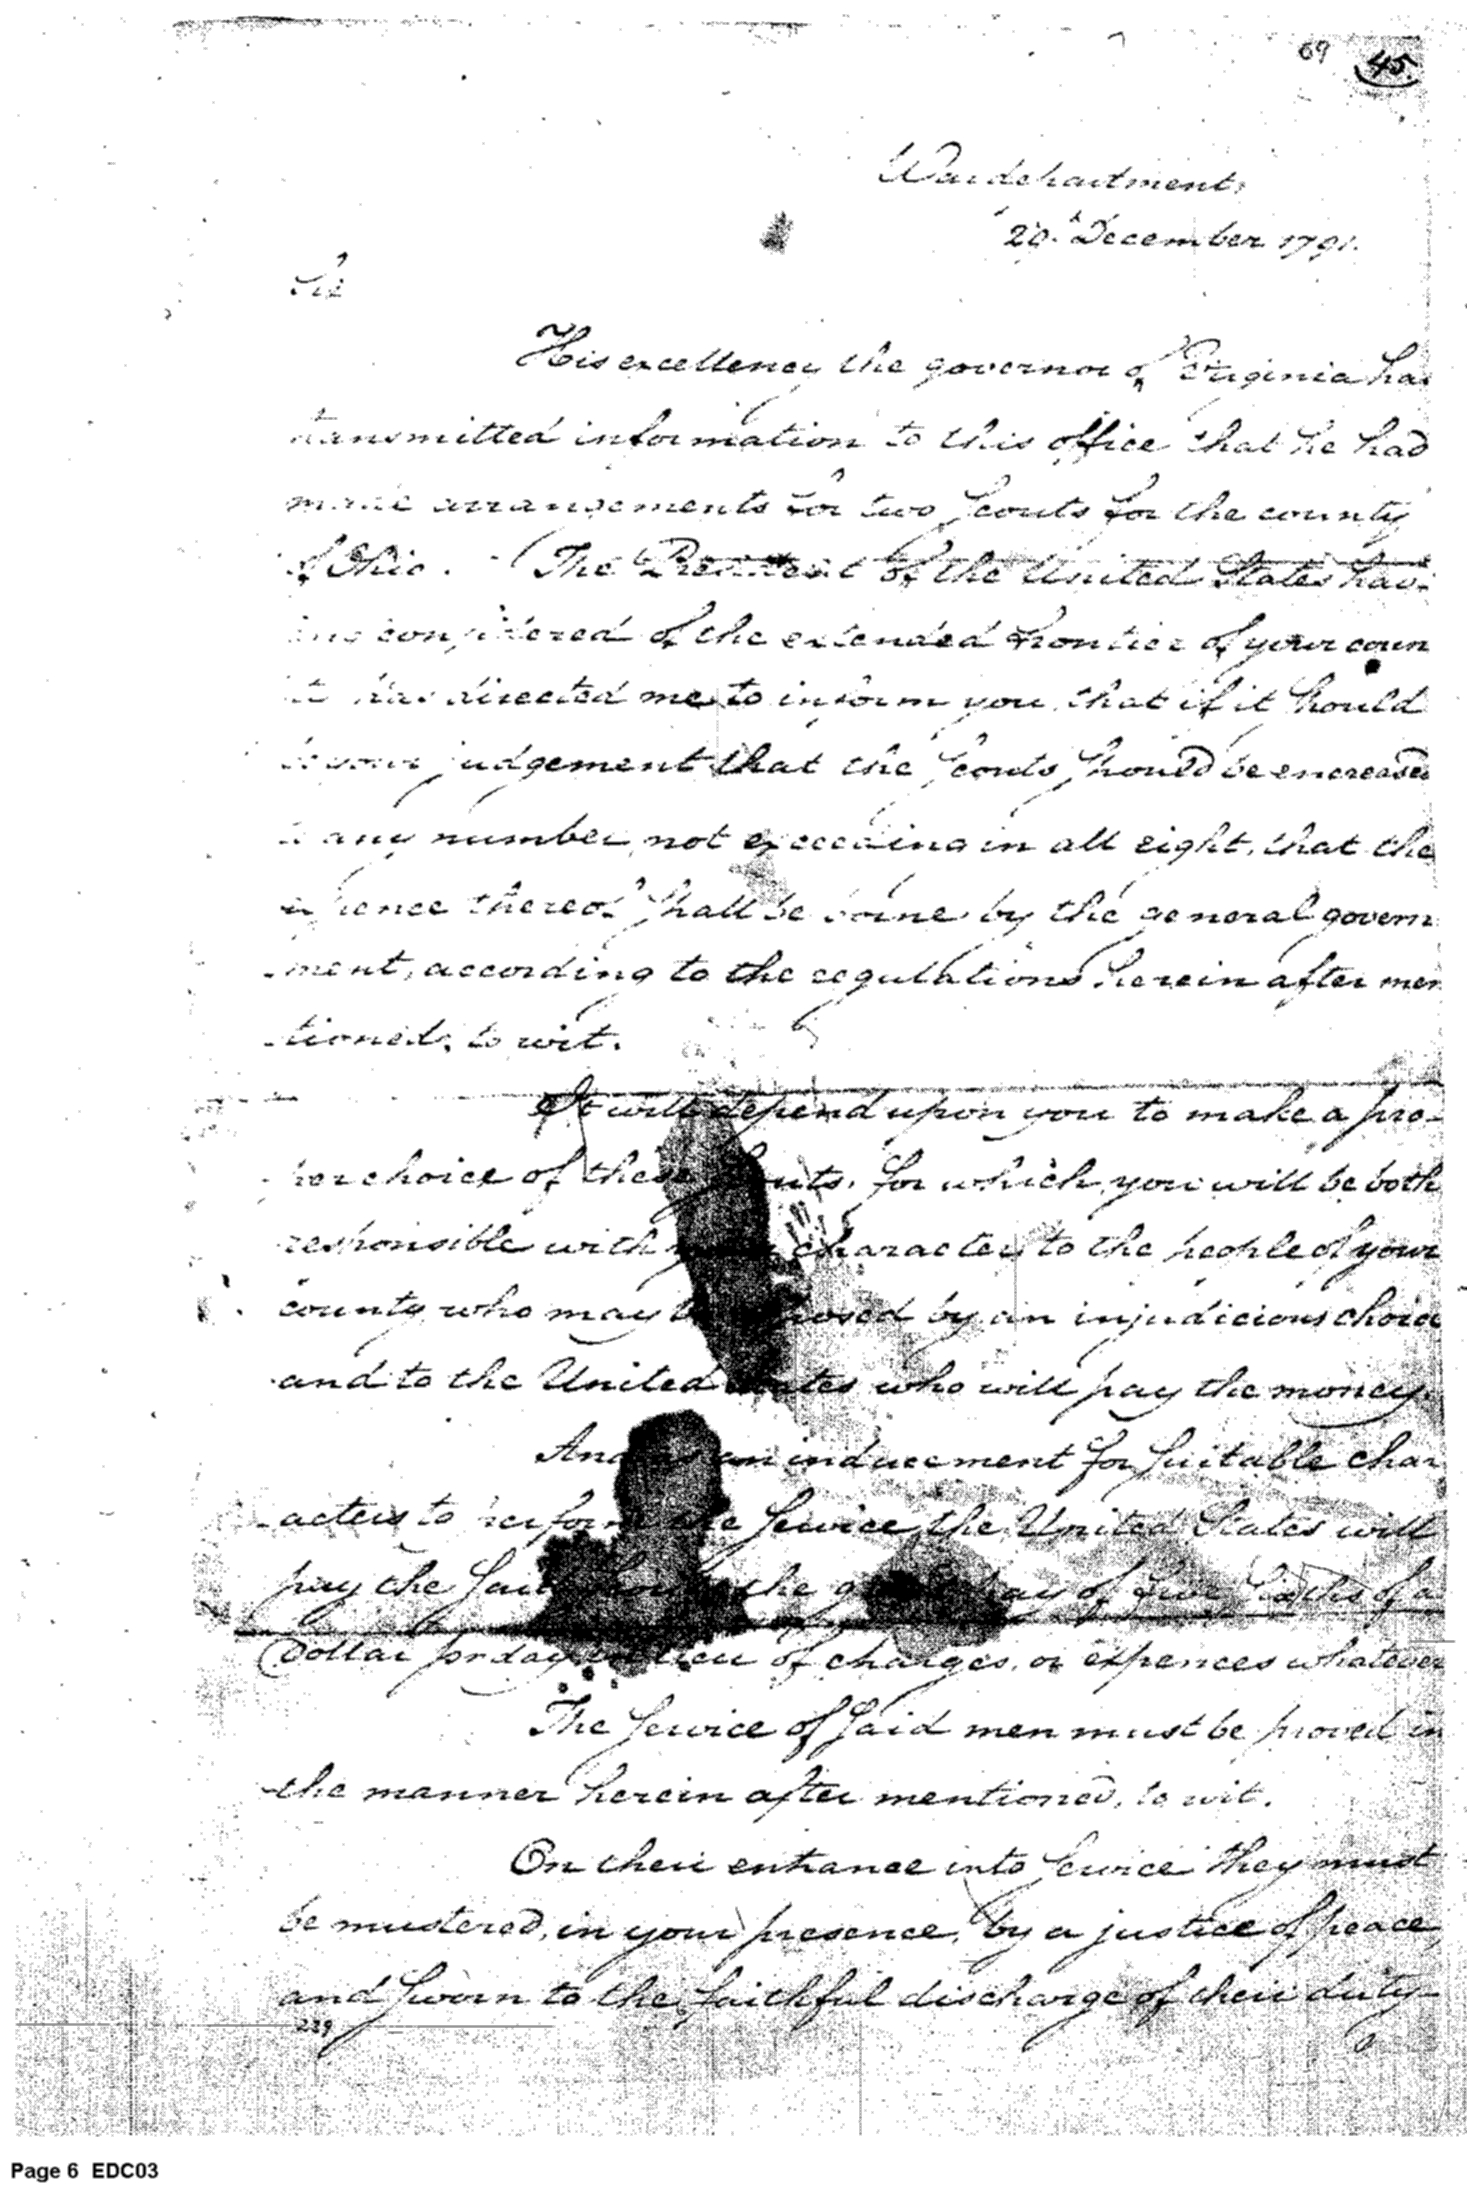 69 45.
War department,
29.th December 1791.
Sir
His excellency the governor of Virginia has
transmitted information to this office that he had
made arrangements for two scouts for the county
of Ohio. The President of the United States hav-
ing considered of the extended frontier of your coun
ty has directed me to inform you, that if it should
be your judgement that the scouts should be encreased
to any number, not exceeding in all eight, that the
expence thereof shall be borne by the general govern
-ment, according to the regulations herein after men
-tioned, to wit.
It will depend upon you to make a pro-
per choice of these scouts, for which, you will be both
responsible with your character to the people of your
county who may be exposed by an injudicious choice
and to the United States who will pay the money.
And as an inducement for suitable char
-acters to perform the service, the United States will
pay the said the pay of five sixths of a
Dollar per day in lieu of charges, or expences whatever
The service of said men must be proved in
the manner herein after mentioned, to wit.
On their entrance into service they must
be mustered, in your presence, by a justice of peace,
and sworn to the faithful discharge of their duty-
239
Page 6 EDC03